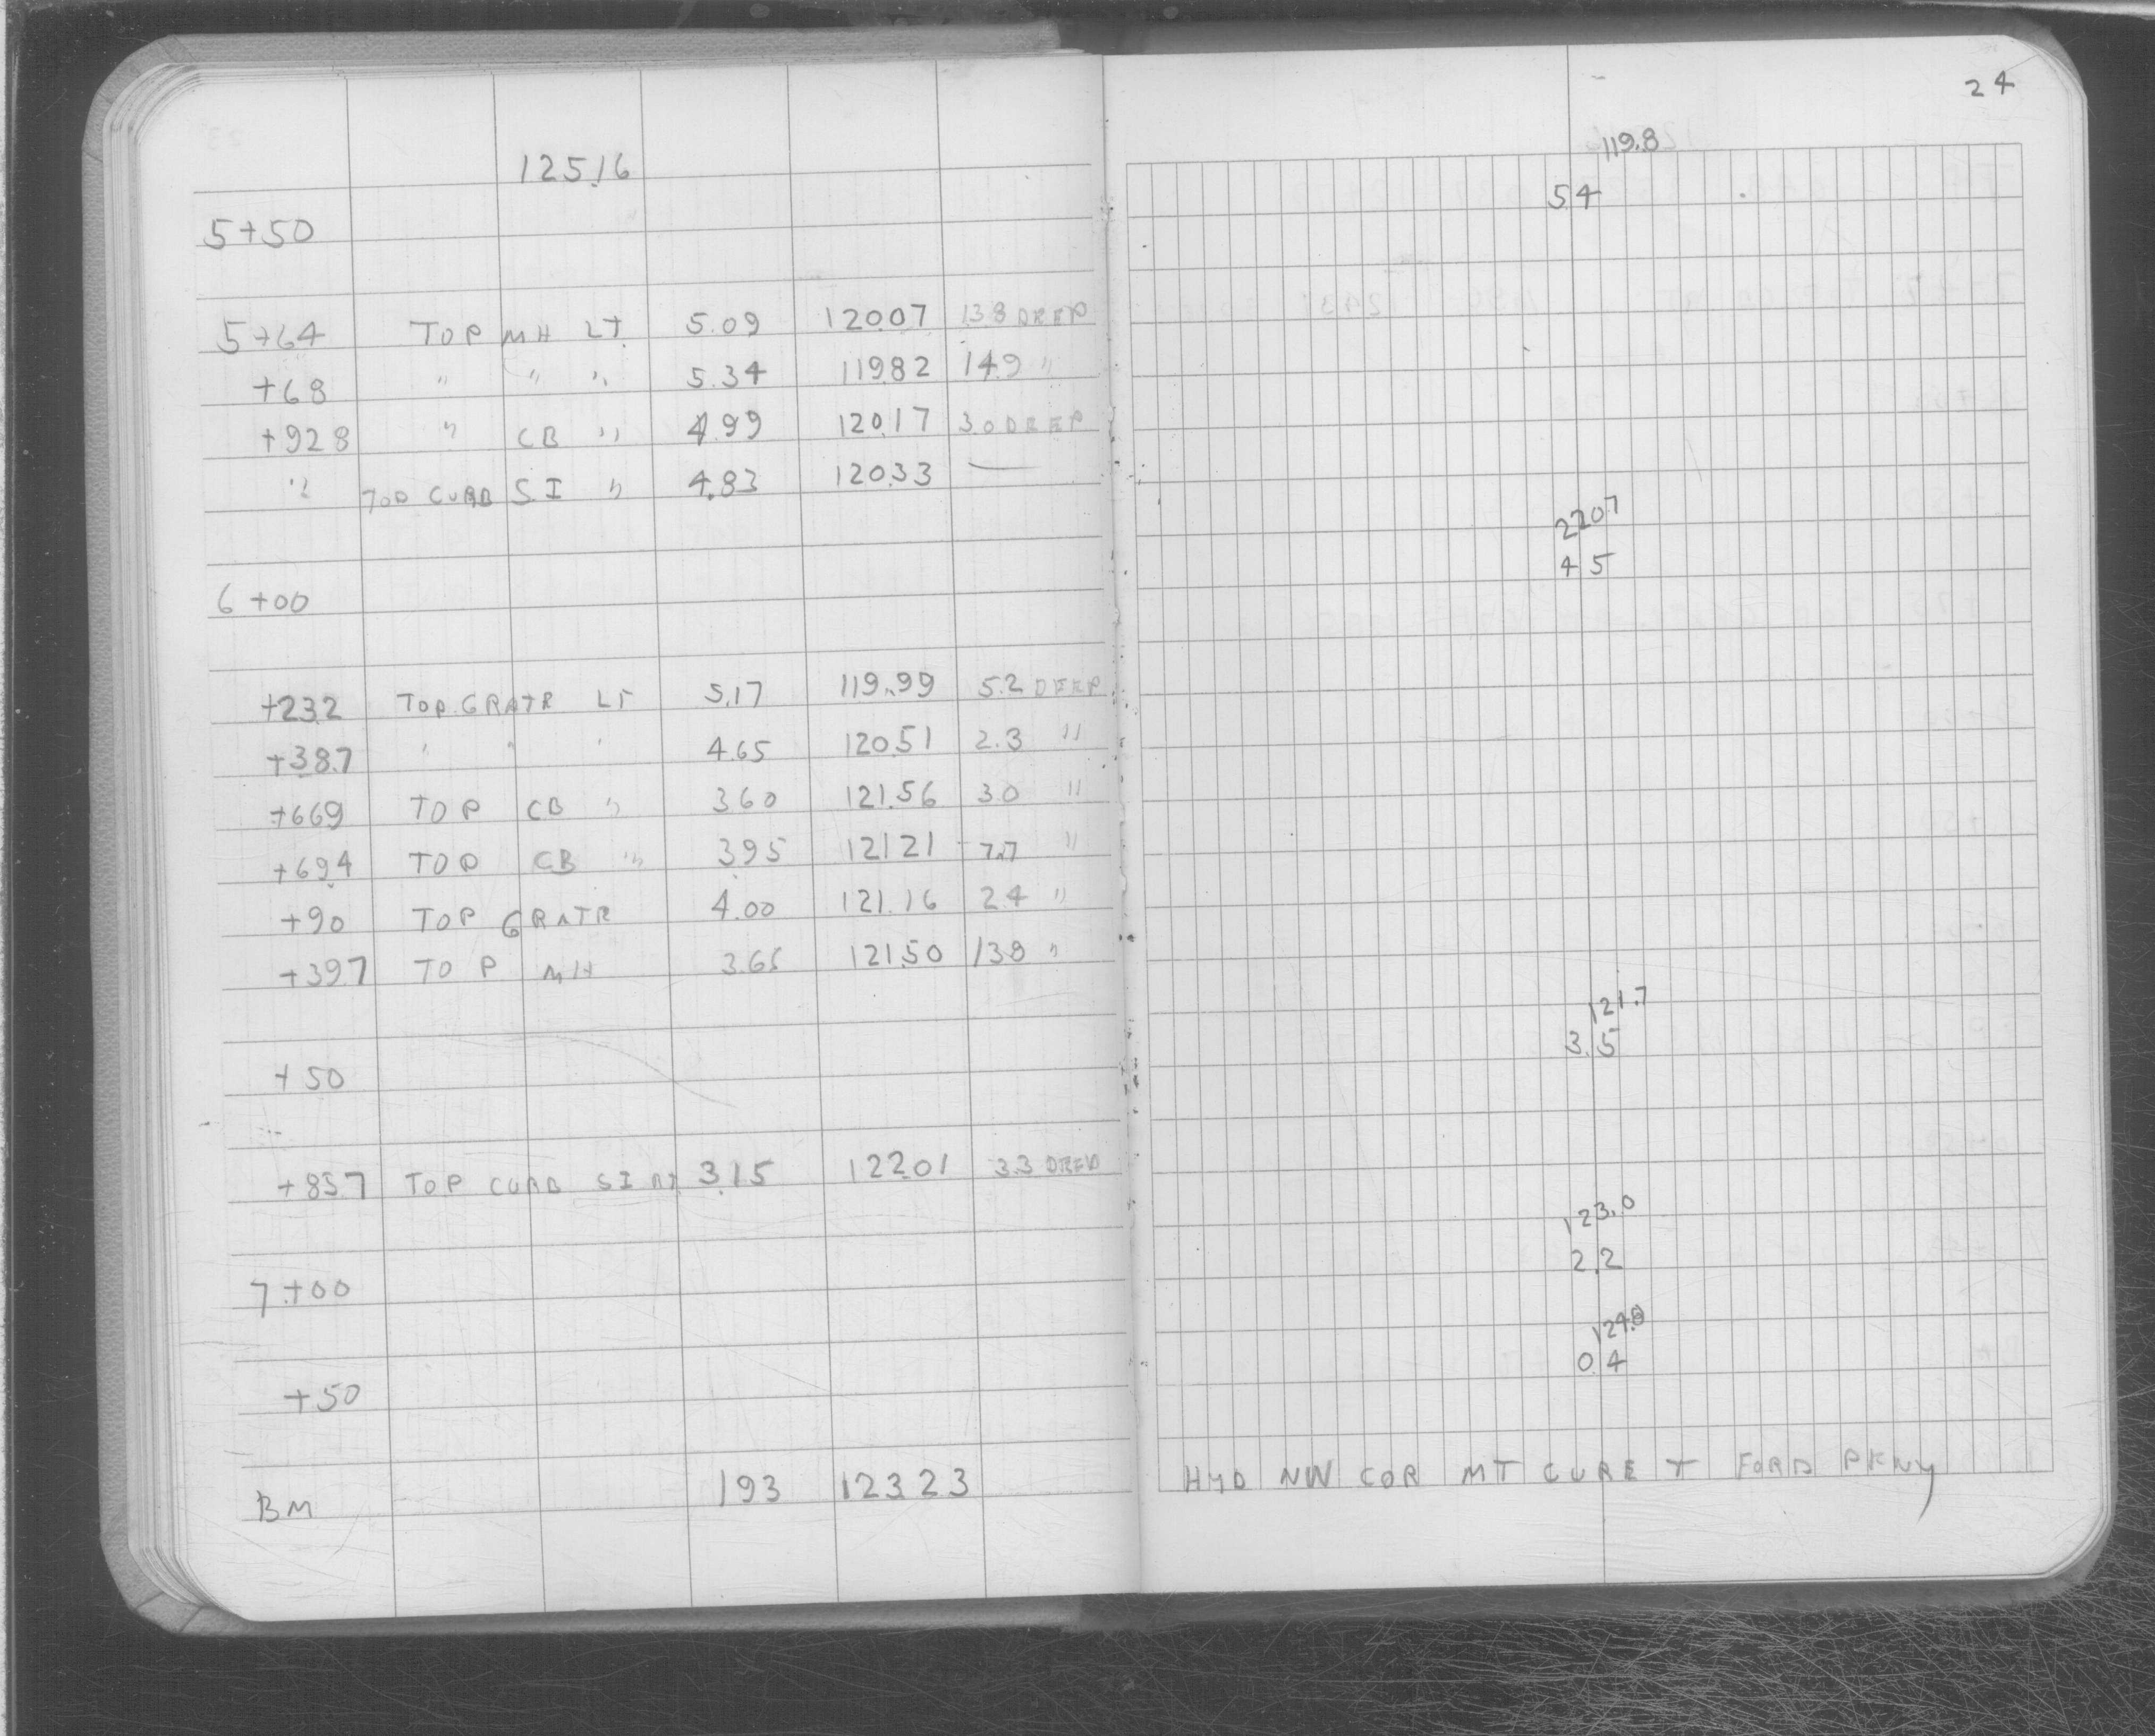 125.16
5+50
5+64 TOP MH LT. 5.09 120.07 13.8 DEEP
+68 " " " 5.34 119.82 14.9 "
+92.8 " CB " 4.99 120.17 3.0 DEEP
" TOP CURB S.I " 4.83 120.33 —
6+00
+23.2 TOP GRATE LT 5.17 119.99 5.2 DEEP
+38.7 " " " 4.65 120.51 2.3 "
+66.9 TOP CB " 3.60 121.56 3.0 "
+69.4 TOP CB " 3.95 121.21 7.7 "
+90 TOP GRATE 4.00 121.16 2.4 "
+39.7 TOP MH 3.65 121.50 13.8 "
+50
+85.7 TOP CURB SI RT 3.15 122.01 3.3 DEEP
7+00
+50
BM 1.93 123.23
24
119.8
5.4
220.7
4.5
121.7
3.5
123.0
2.2
124.8
0.4
HYD NW COR MT CURE + FORD PKWY